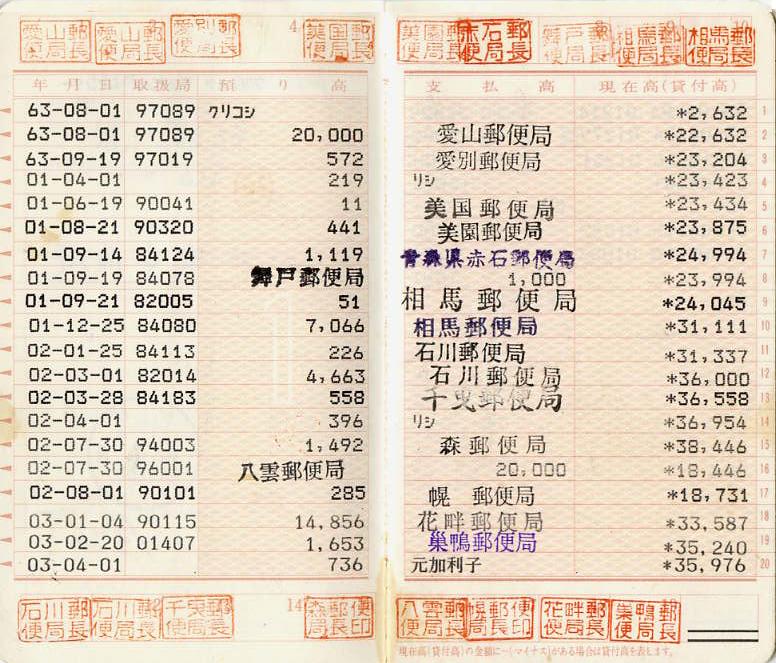 愛山郵便局長 愛山郵便局長 愛別郵便局長 4 美国郵便局長 美園郵便局長 赤石郵便局長 舞戸郵便局長 相馬郵便局長 相馬郵便局長
年月日 取扱局 預り高 支払高 現在高(貸付高)
63-08-01 97089 クリコシ *2,632 1
63-08-01 97089 20,000 愛山郵便局 *22,632 2
63-09-19 97019 572 愛別郵便局 *23,204 3
01-04-01 219 リシ *23,423 4
01-06-19 90041 11 美国郵便局 *23,434 5
01-08-21 90320 441 美園郵便局 *23,875 6
01-09-14 84124 1,119 青森県赤石郵便局 *24,994 7
01-09-19 84078 舞戸郵便局 1,000 *23,994 8
01-09-21 82005 51 相馬郵便局 *24,045 9
01-12-25 84080 7,066 相馬郵便局 *31,111 10
02-01-25 84113 226 石川郵便局 *31,337 11
02-03-01 82014 4,663 石川郵便局 *36,000 12
02-03-28 84183 558 千曳郵便局 *36,558 13
02-04-01 396 リシ *36,954 14
02-07-30 94003 1,492 森郵便局 *38,446 15
02-07-30 96001 八雲郵便局 20,000 *18,446 16
02-08-01 90101 285 幌 郵便局 *18,731 17
03-01-04 90115 14,856 花畔郵便局 *33,587 18
03-02-20 01407 1,653 巣鴨郵便局 *35,240 19
03-04-01 736 元加利子 *35,976 20
石川郵便局長 石川郵便局長 千曳郵便局長 14 森郵便局長 八雲郵便局長 幌郵便局印 花畔郵便局長 巣鴨郵便局長
現在高(貸付高)の金額に−(マイナス)がある場合は貸付高を表します。